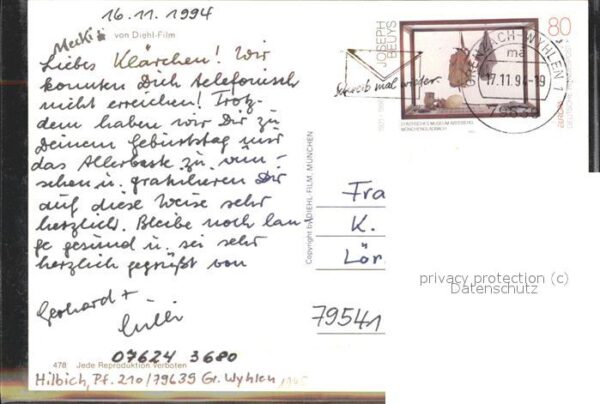 16.11.1994
Mecki von Diehl-Film
Liebes Klärchen! Wir
konnten Dich telefonisch
nicht erreichen! Trotz-
dem haben wir Dir zu
Deinem Geburtstag nur
das Allerbeste zu wün-
schen u. gratulieren Dir
auf diese Weise sehr
herzlich. Bleibe noch lan-
ge gesund u. sei sehr
herzlich gegrüßt von
Gerhard +
07624 3680
478 Jede Reproduktion verboten
Hilbich, Pf. 210/79639 Gr. Wyhlen
Copyright by DIEHL FILM, MÜNCHEN
JOSEPH
BEUYS
80
Schreib mal wieder.
GRENZACH-WYHLEN 1
17.11.94-19
79639
STÄDTISCHES MUSEUM ABTEIBERG,
MÖNCHENGLADBACH
Fra
K.
Lör
79541
privacy protection (c)
Datenschutz